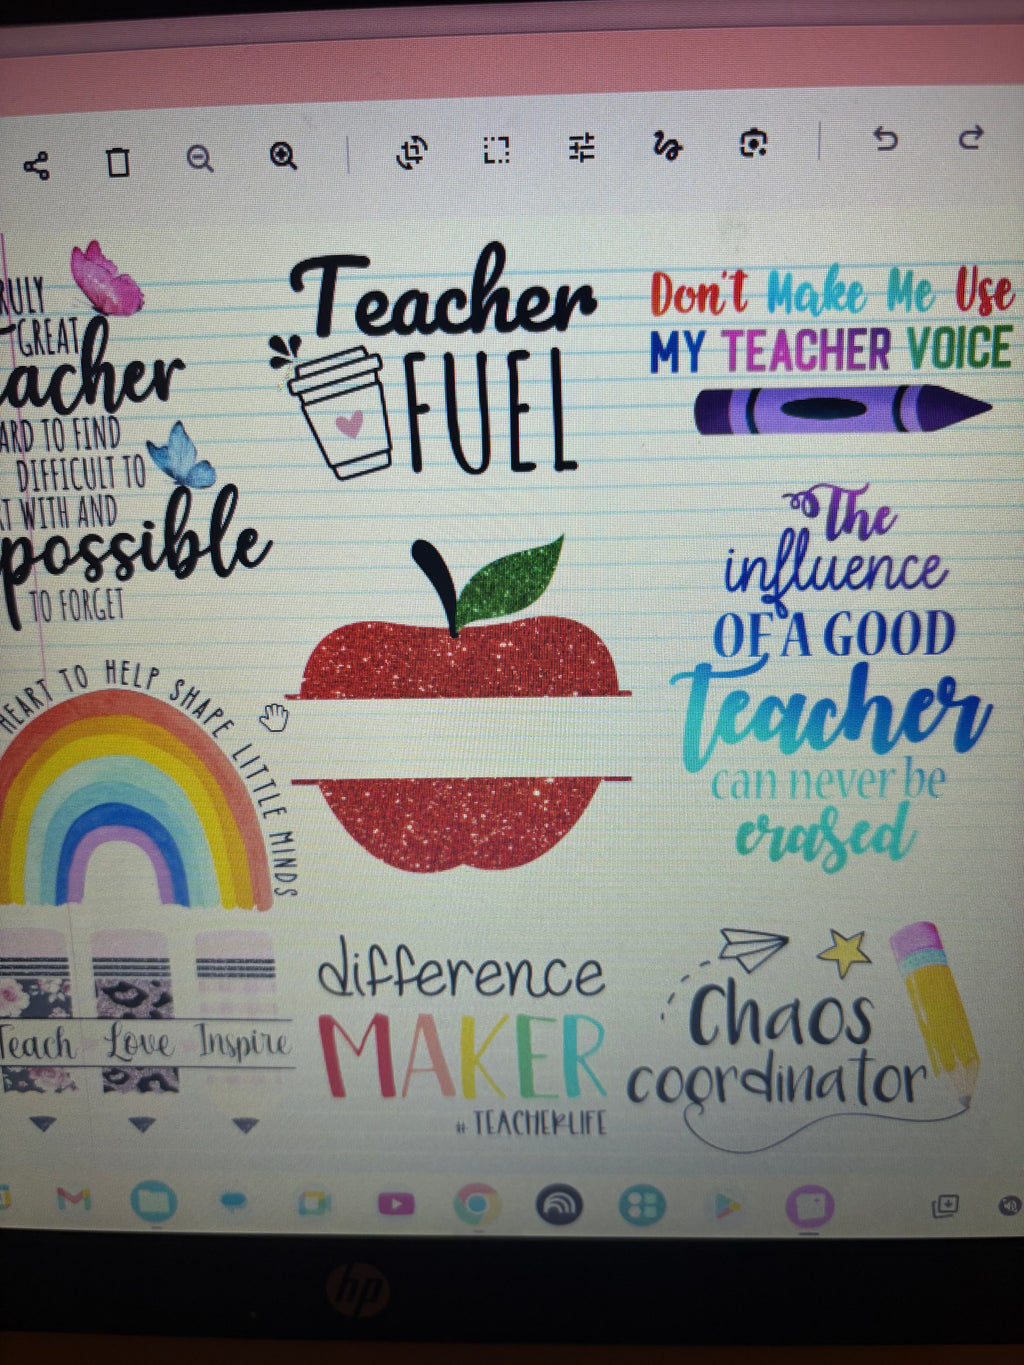 RULY
GREAT
acher
ARD TO FIND
DIFFICULT TO
T WITH AND
possible
TO FORGET
Teacher
FUEL
Don't Make Me Use
MY TEACHER VOICE
The
influence
OF A GOOD
teacher
can never be
erased
HEART TO HELP SHAPE LITTLE MINDS
Teach Love Inspire
difference
MAKER
# TEACHERLIFE
Chaos
coordinator
hp